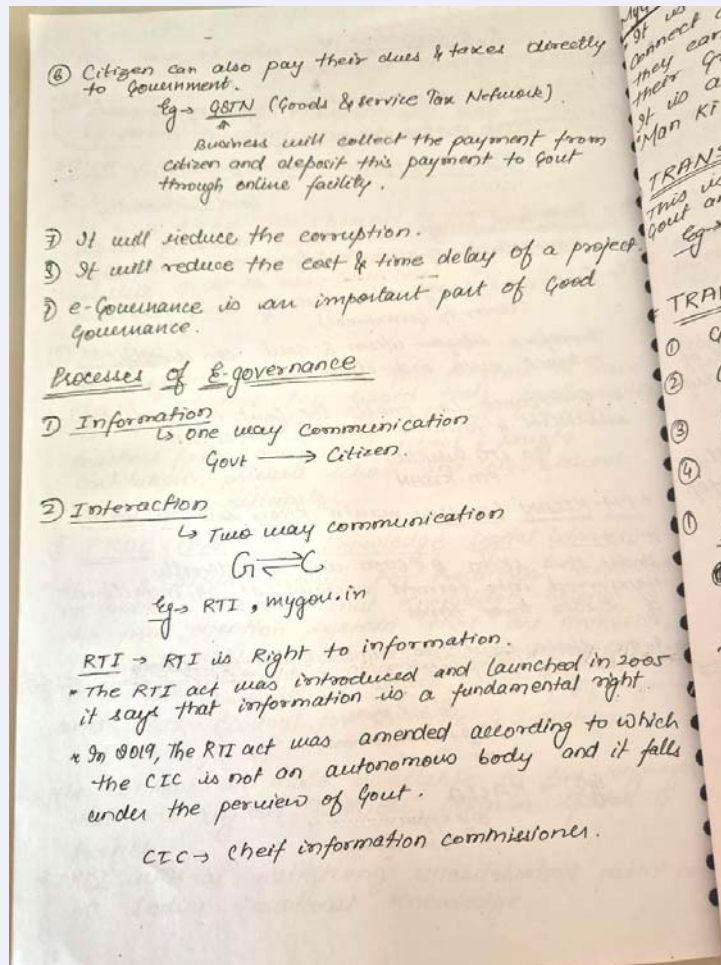 ⑥ Citizen can also pay their dues & taxes directly
to Government.
Eg→ GSTN (Goods & service Tax Network).
Business will collect the payment from
citizen and deposit this payment to Govt
through online facility.
7) It will reduce the corruption.
8) It will reduce the cost & time delay of a project.
9) e-Governance is an important part of Good
Governance.
Processes of E-governance
1) Information
↳ one way communication
Govt → Citizen.
2) Interaction
↳ Two way communication
G ⇌ C
Eg→ RTI, mygov.in
RTI → RTI is Right to information.
* The RTI act was introduced and launched in 2005
it says that information is a fundamental right.
* In 2019, The RTI act was amended according to which
the CIC is not an autonomous body and it falls
under the perview of Govt.
CIC → Cheif information commissioner.
It is
connect
they can
their
It is a
"Man Ki
TRANS
This is
Govt an
Eg→
TRA
①
②
③
④
①